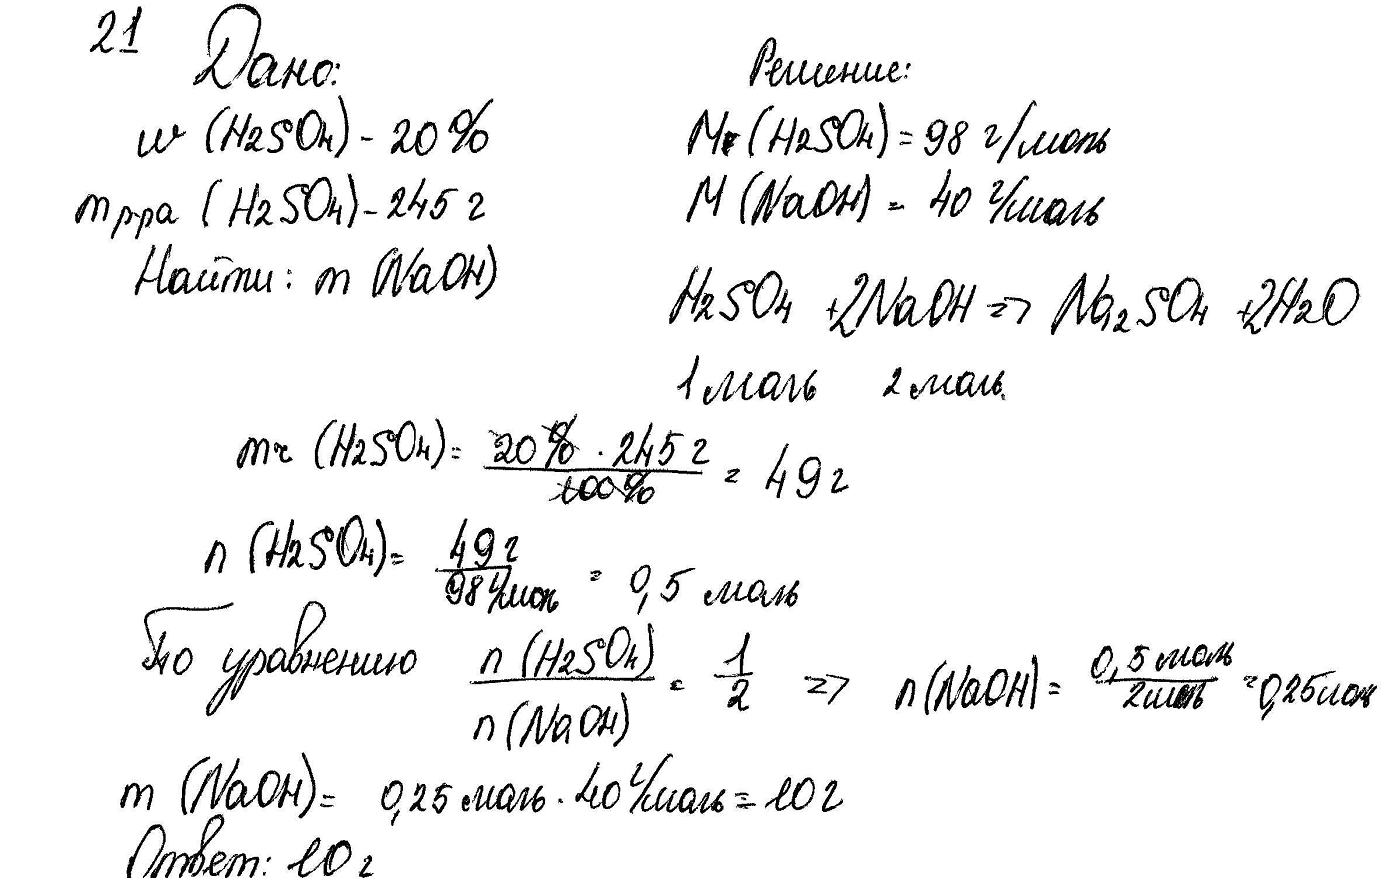 21 Дано:
w (H2SO4) - 20%
m р-ра (H2SO4) - 245 г
Найти: m (NaOH)
Решение:
Mr (H2SO4) = 98 г/моль
M (NaOH) = 40 г/моль
H2SO4 + 2NaOH => Na2SO4 + 2H2O
1 моль 2 моль
mч (H2SO4) = 20% · 245 г / 100% = 49 г
n (H2SO4) = 49 г / 98 г/моль = 0,5 моль
По уравнению n (H2SO4) / n (NaOH) = 1/2 => n (NaOH) = 0,5 моль / 2 моль = 0,25 моль
m (NaOH) = 0,25 моль · 40 г/моль = 10 г
Ответ: 10 г